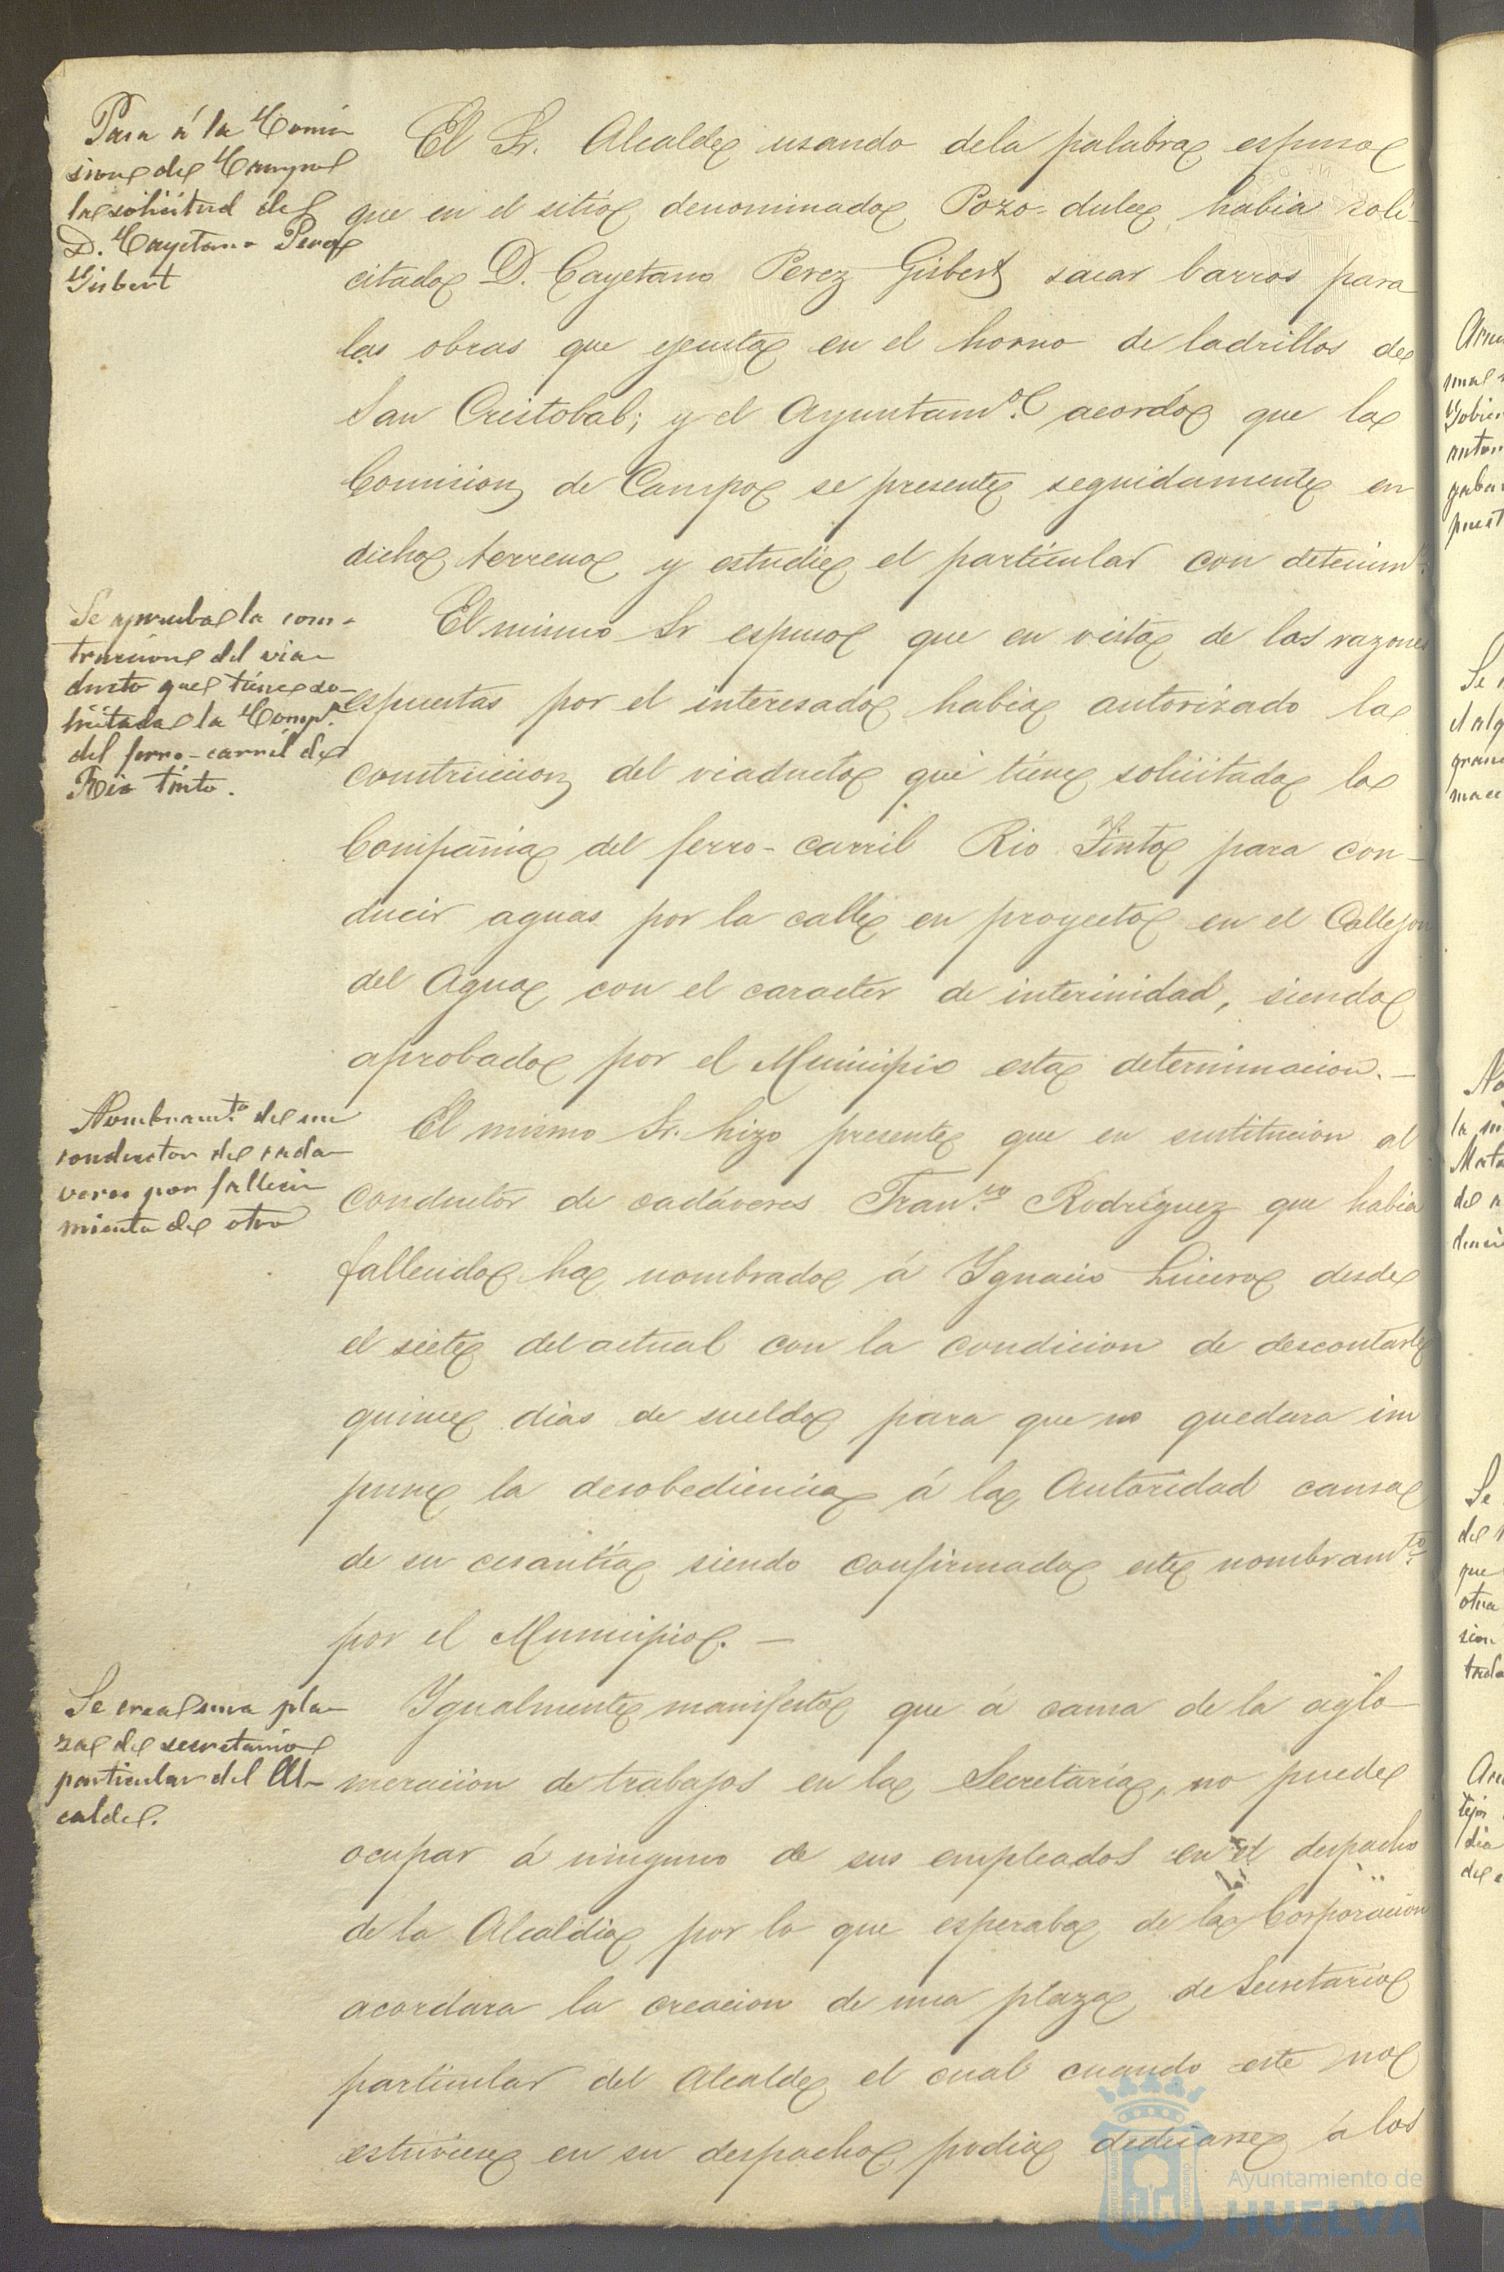 Pasa á la Comi-
sion de Campo
la solicitud de
D. Cayetano Perez
Gisbert
El Sr. Alcalde usando dela palabra espuso
que en el sitio denominado Pozo-dulce habia soli-
citado D. Cayetano Perez Gisbert sacar barros para
las obras que ejecuta en el horno de ladrillos de
San Cristobal; y el Ayuntamto. acordó que la
Comision de Campo se presente seguidamente en
dicho terreno y estudie el particular con detenimto.
Se aprueba la cons-
truccion del via-
ducto que tiene so-
licitada la Compa.
del ferro-carril de
Rio tinto.
El mismo Sr espuso que en vista de las razones
espuestas por el interesado habia autorizado la
construccion del viaducto que tiene solicitado la
Compañia del ferro-carril Rio Tinto para con-
ducir aguas por la calle en proyecto en el Callejon
del Agua con el caracter de interinidad, siendo
aprobado por el Municipio esta determinacion.-
Nombramto. de un
conductor de cada-
veres por falleci-
miento de otro
El mismo Sr. hizo presente que en sustitucion al
conductor de cadáveres Franco. Rodriguez que habia
fallecido ha nombrado á Ygnacio Lucero desde
el siete del actual con la condicion de descontarle
quince dias de sueldo para que no quedara im
pune la desobediencia á la Autoridad causa
de su cesantía siendo confirmado este nombramto.
por el Municipio.-
Se crea una pla-
za de secretario
particular del Al-
calde.
Ygualmente manifestó que á causa de la aglo-
meracion de trabajos en la Secretaria, no puede
ocupar á ninguno de sus empleados en el despacho
de la Alcaldia por lo que esperaba de la Corporacion
acordara la creacion de una plaza de Secretario
particular del Alcalde el cual cuando este no
estuviese en su despacho podia dedicarse á los
Ayuntamiento de
HUELVA